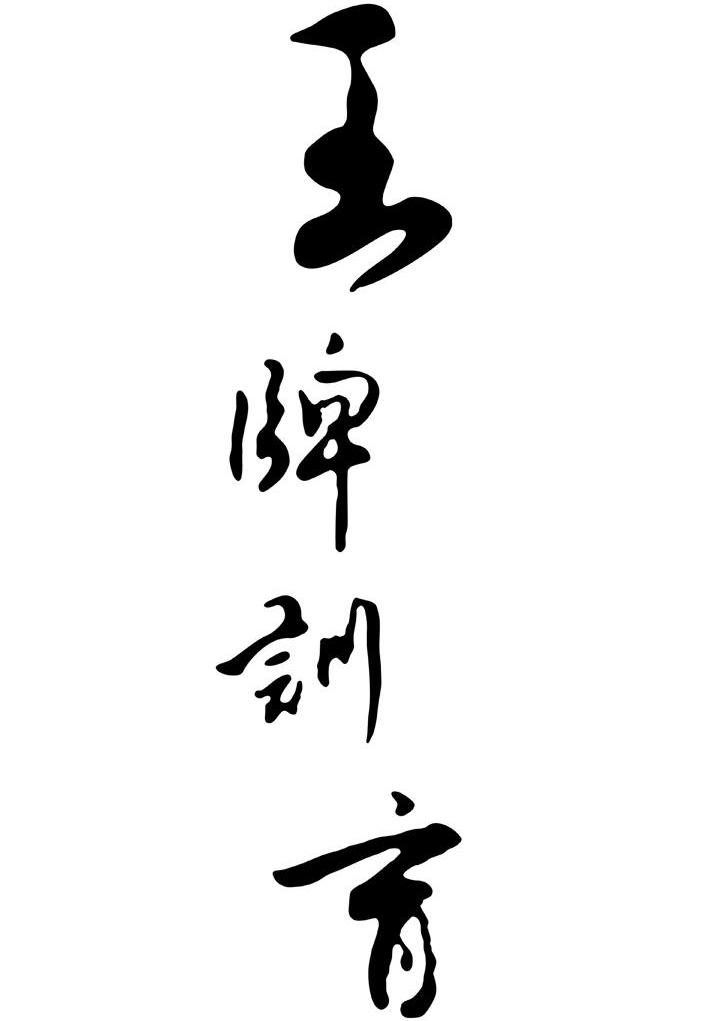 王牌訓育